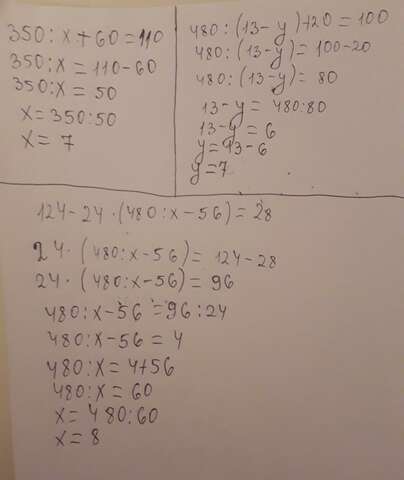 350:x+60=110
350:x=110-60
350:x=50
x=350:50
x=7
480:(13-y)+20=100
480:(13-y)=100-20
480:(13-y)=80
13-y=480:80
13-y=6
y=13-6
y=7
124-24·(480:x-56)=28
24·(480:x-56)=124-28
24·(480:x-56)=96
480:x-56=96:24
480:x-56=4
480:x=4+56
480:x=60
x=480:60
x=8